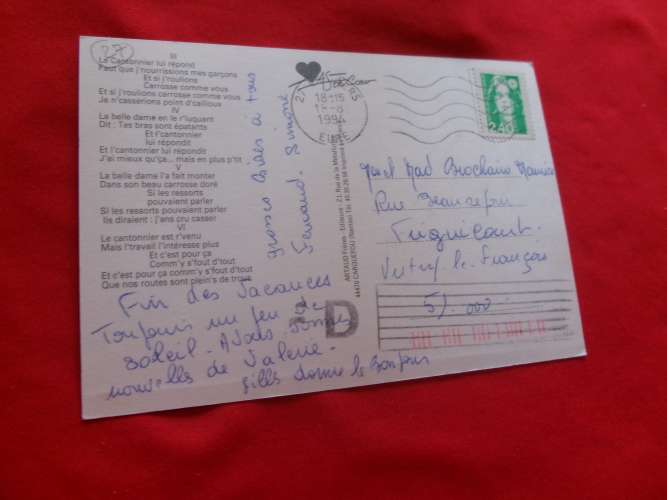 27
III
Le Cantonnier lui répond
Faut que j'nourrissions mes garçons
Et si j'roulions
Carrosse comme vous
Et si j'roulions carrosse comme vous
Je n'casserions point d'cailloux
IV
La belle dame en le r'luquant
Dit : Tes bras sont épatants
Et l'cantonnier
lui répondit
Et l'cantonnier lui répondit
J'ai mieux qu'ça... mais en plus p'tit
V
La belle dame l'a fait monter
Dans son beau carrosse doré
Si les ressorts
pouvaient parler
Si les ressorts pouvaient parler
Ils diraient : j'ans cru casser
VI
Le cantonnier est r'venu
Mais l'travail l'intéresse plus
Et c'est pour ça
Comm'y s'fout d'tout
Et c'est pour ça comm'y s'fout d'tout
Que nos routes sont plein's de trous
Fin des Vacances
Toujours un peu de
soleil - Avons
nouvelles de Valérie.
donne le bonjour
grosses bises à tous
Fernand. Simone
ARTAUD Frères - Editeurs
44470 CARQUEFOU (Nantes)
18-15
1994
EURE
2,40
Rue Beaurepaire
Vitry-le-François
51.000
D